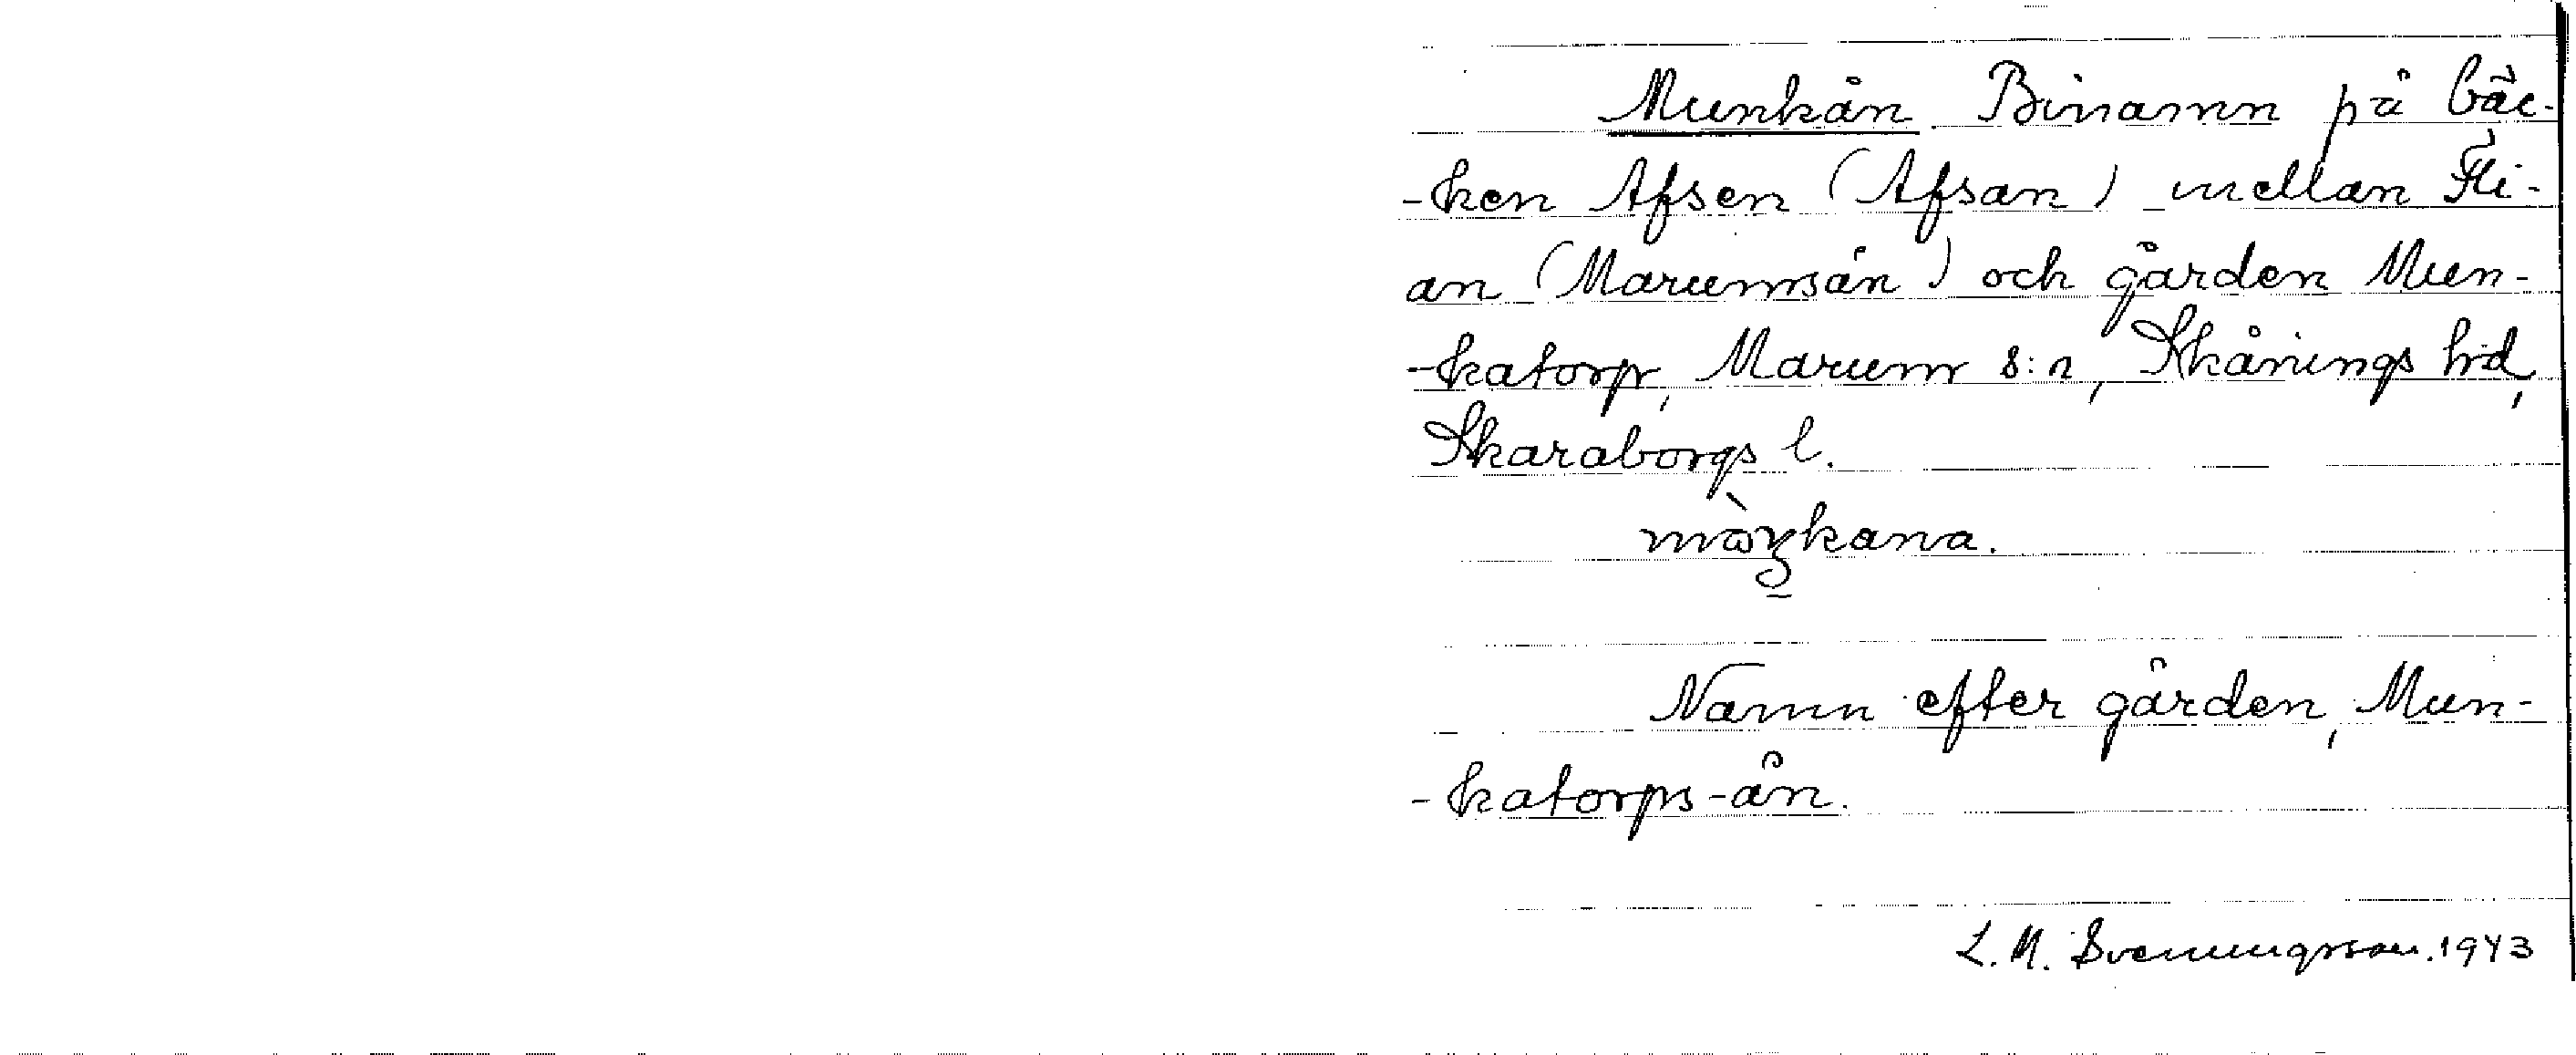 Munkån Binamn på bäc-
-ken Afsen (Afsan) mellan Fli-
an (Marumsån) och gården Mun-
-katorp, Marum s:n, Skånings hd,
Skaraborgs l.
Namn efter gården, Mun-
-katorps-ån.
L. M. Svenungsson. 1943